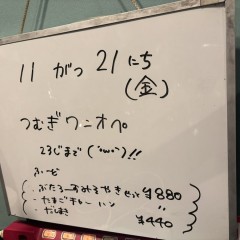 11 がつ 21 にち
(金)
つむぎワンオペ
23じまで(´・ω・`)!!
ふーど
・ぶたろーすみそやきセット ¥880
・たまごチャーハン 〃
・だしまき ¥440